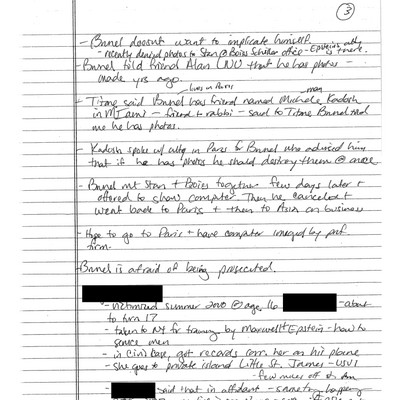 3
- Brunel doesn't want to implicate himself.
- recently denied photos to Stan @ Boies Schiller office - Epstein's atty there.
- Brunel told friend Alan (NU that he has photos -
made yrs ago.
lives in Paris
man
- Titone said Brunel has friend named Michele Kadosh
in Miami - friend & rabbi - said to Titone Brunel told
me he has photos.
- Kadosh spoke w/ atty in Paris for Brunel who advised him
that if he has photos he should destroy them @ once
- Brunel mt Stan + Boies together few days later +
offered to show computer. Then he canceled +
went back to Paris + then to Asia on business
- Hope to go to Paris + have computer imaged by prvt
firm.
Brunel is afraid of being prosecuted.
- victimized summer 2000 @ age 16 - about
to turn 17
- taken to NY for training by Maxwell + Epstein - how to
service men
- in Civil case, got records corr. her on his plane
- she goes to private island Little St. James - USVI
- few miles off St.
said that in affidavit - same